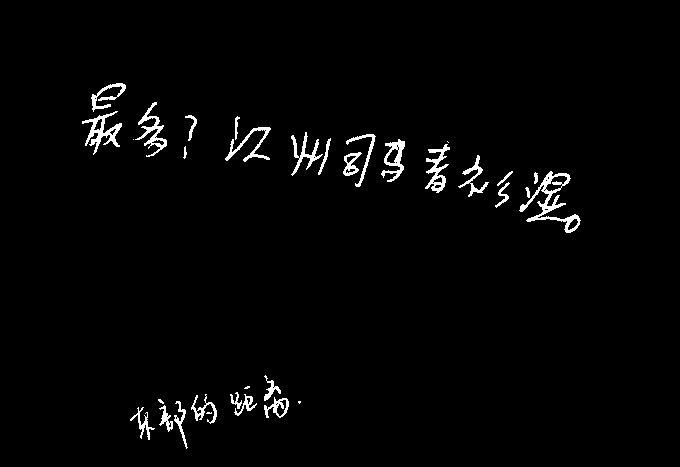 最多？江州司马青衫湿。
东部的距离.